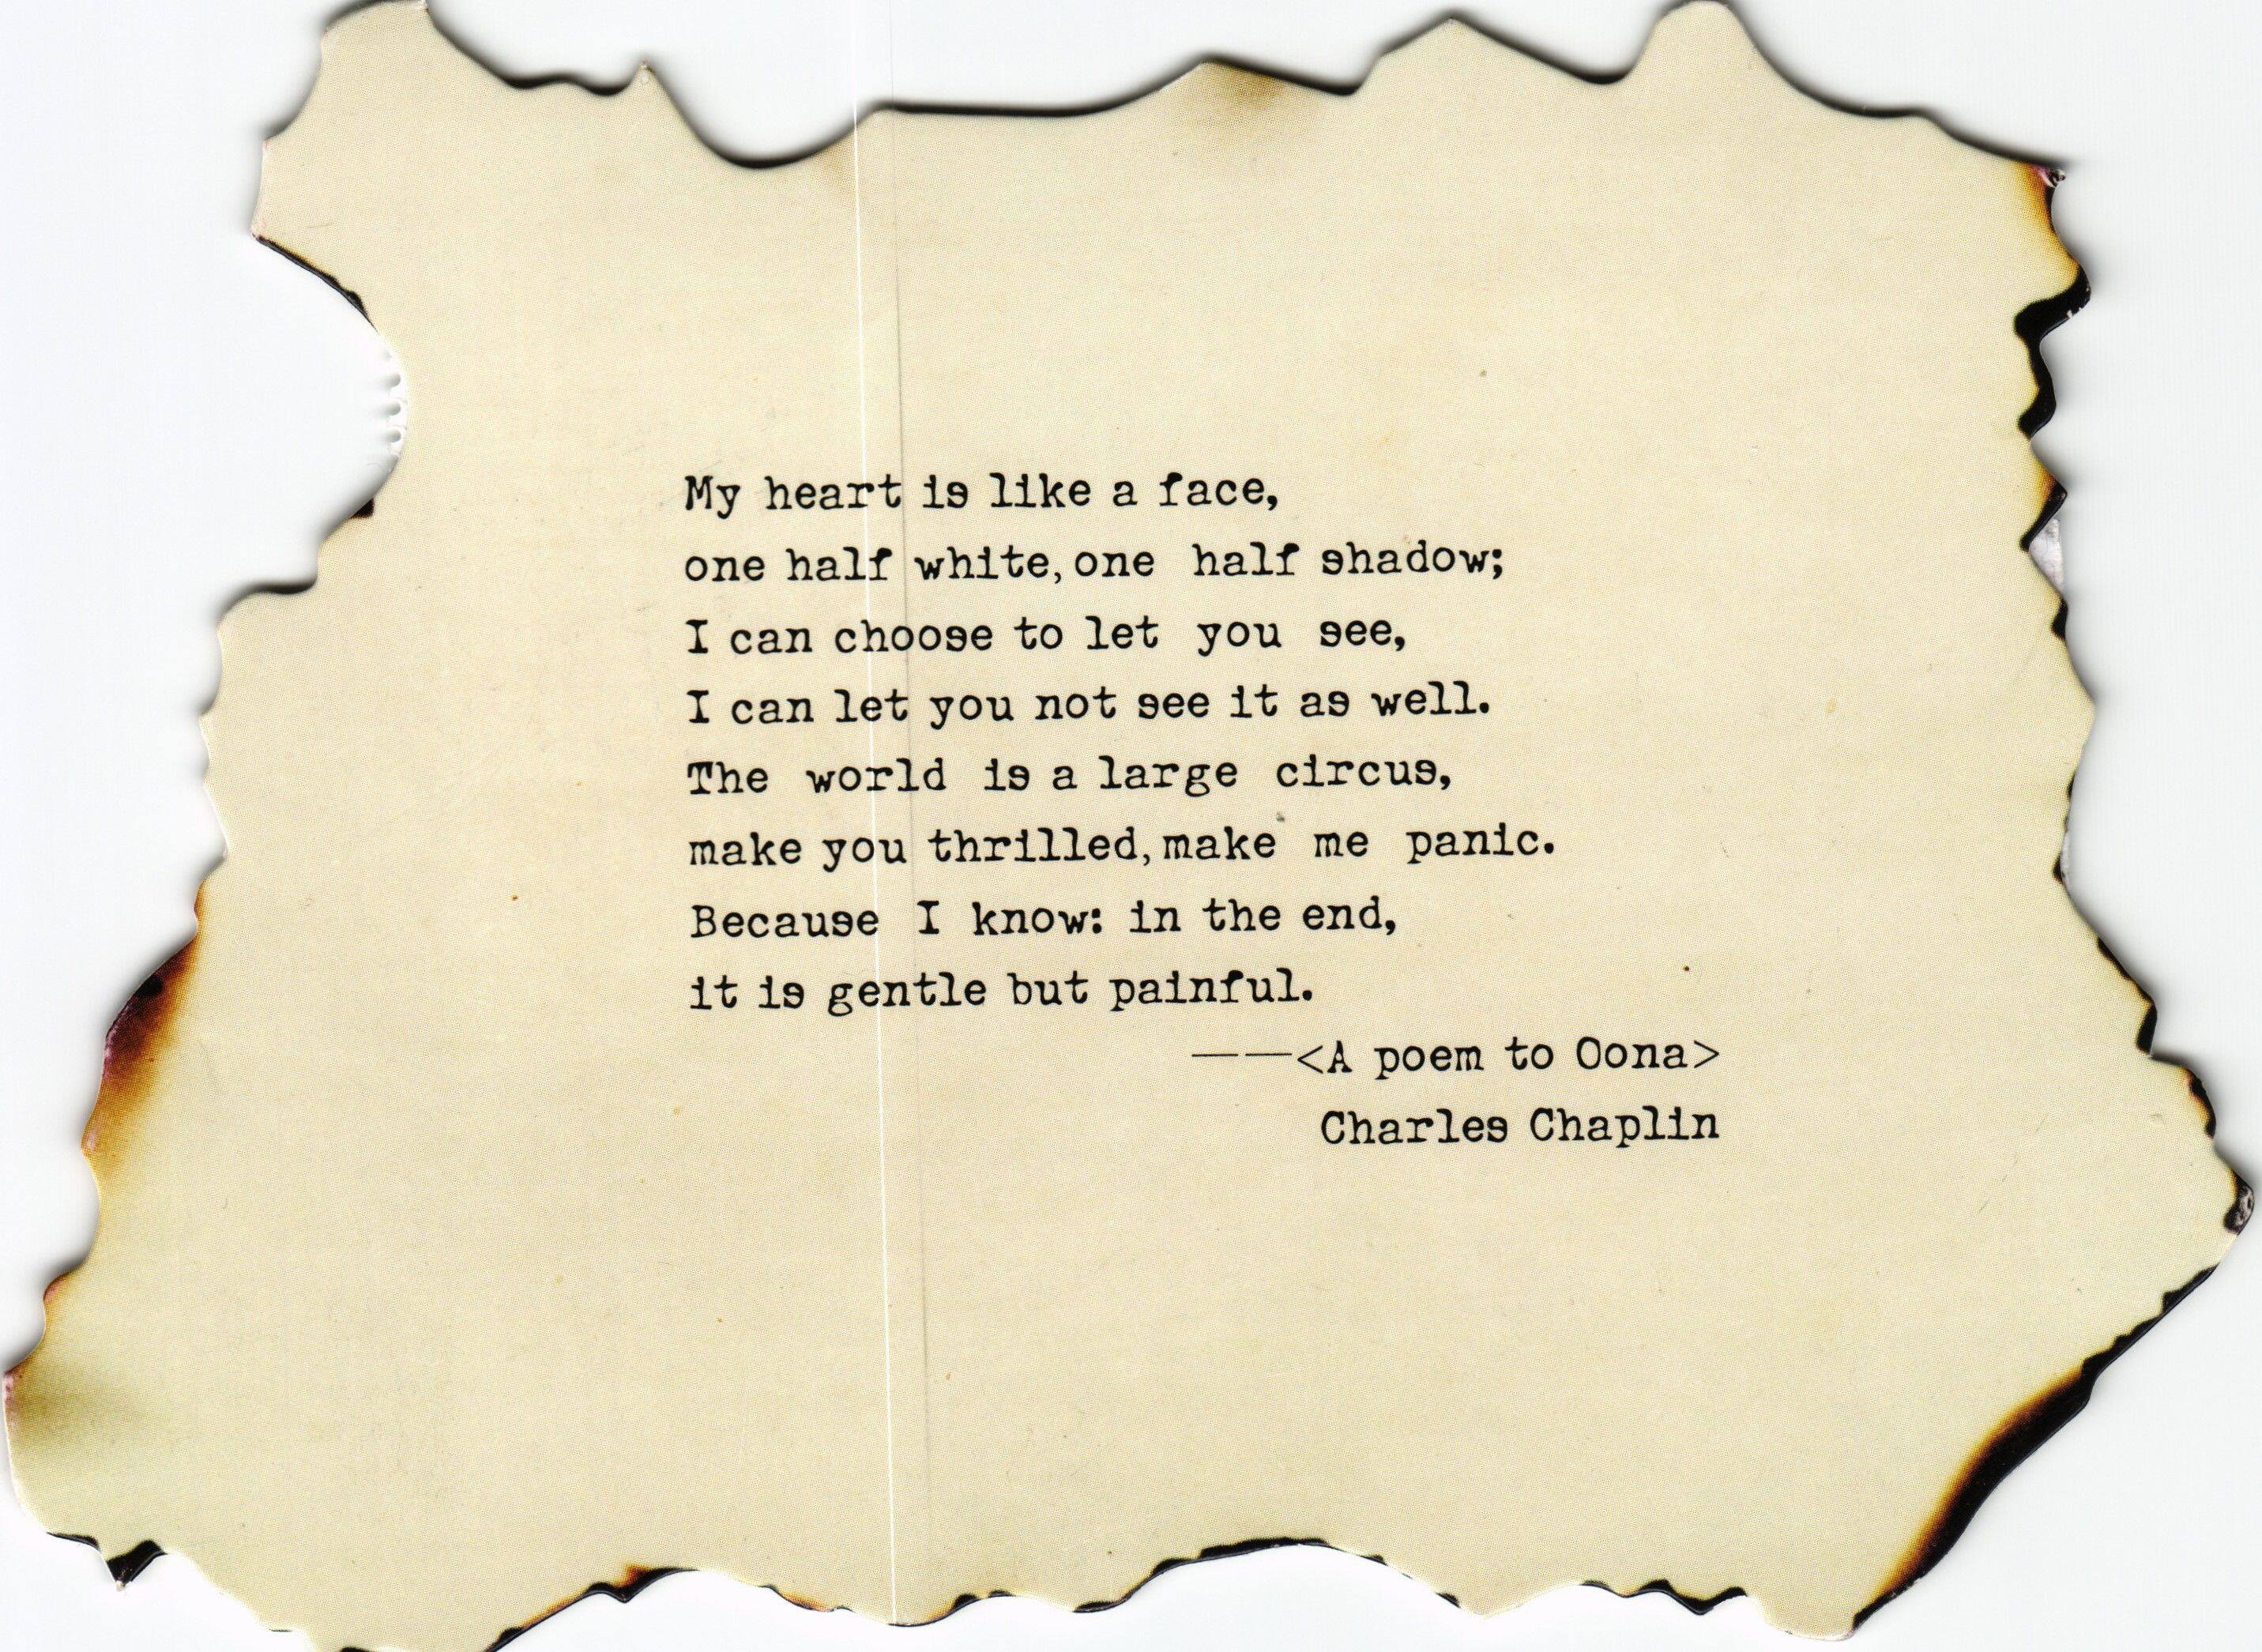 My heart is like a face,
one half white, one half shadow;
I can choose to let you see,
I can let you not see it as well.
The world is a large circus,
make you thrilled, make me panic.
Because I know: in the end,
it is gentle but painful.
——<A poem to Oona>
Charles Chaplin